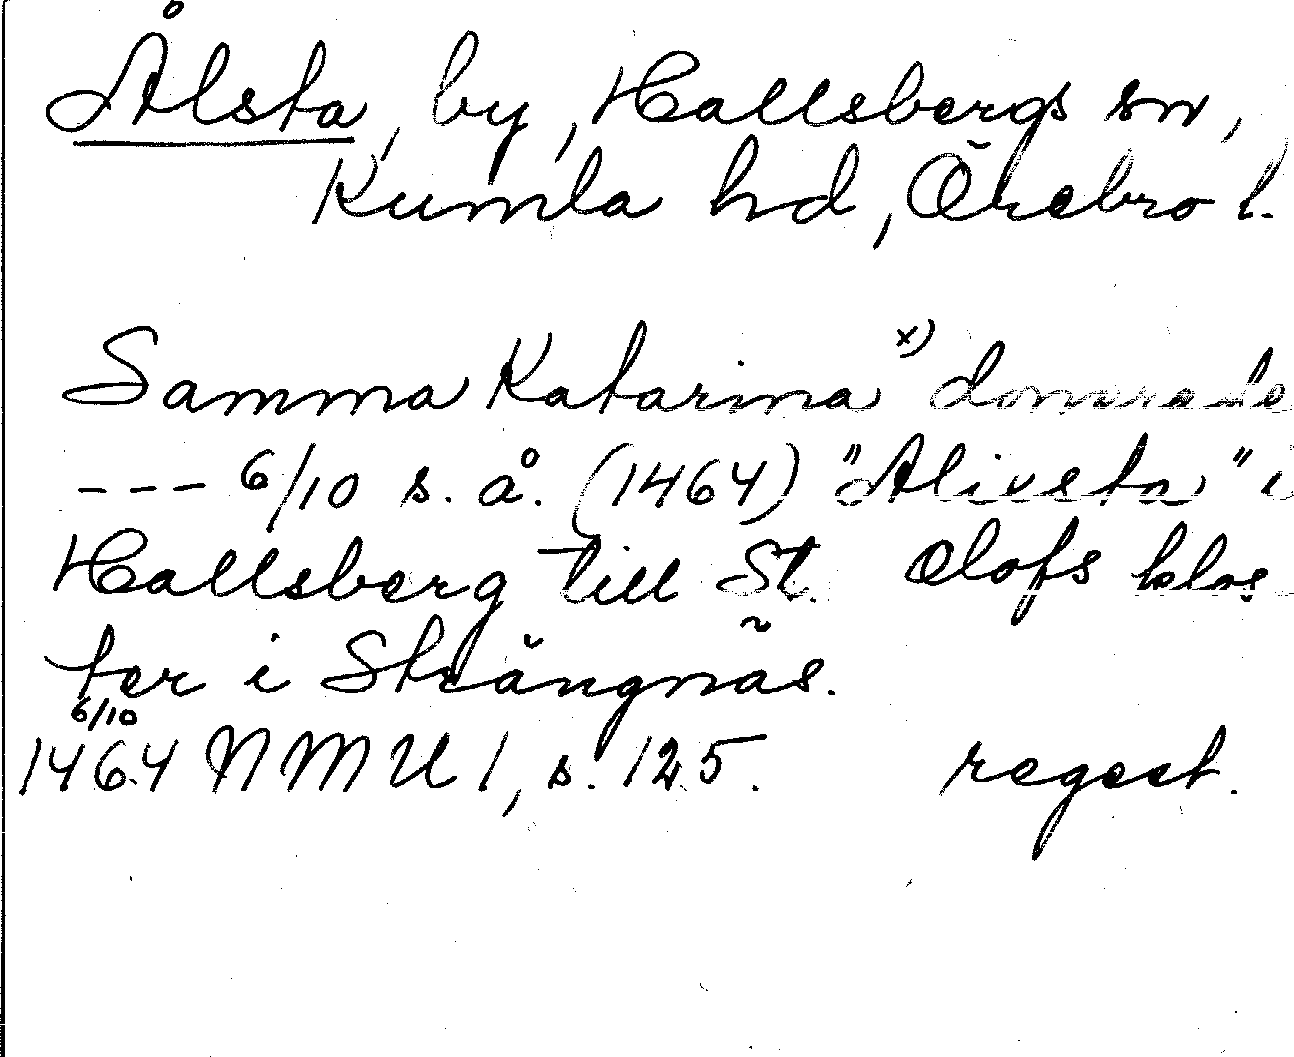 Ålsta, by, Hallsbergs sn,
Kumla hd, Örebro l.
Samma Katarina x) donerade
--- 6/10 s. å. (1464) "Alivsta" i
Hallsberg till St. Olofs klos
ter i Strängnäs.
6/10
1464 NMU 1, s. 125. regest.